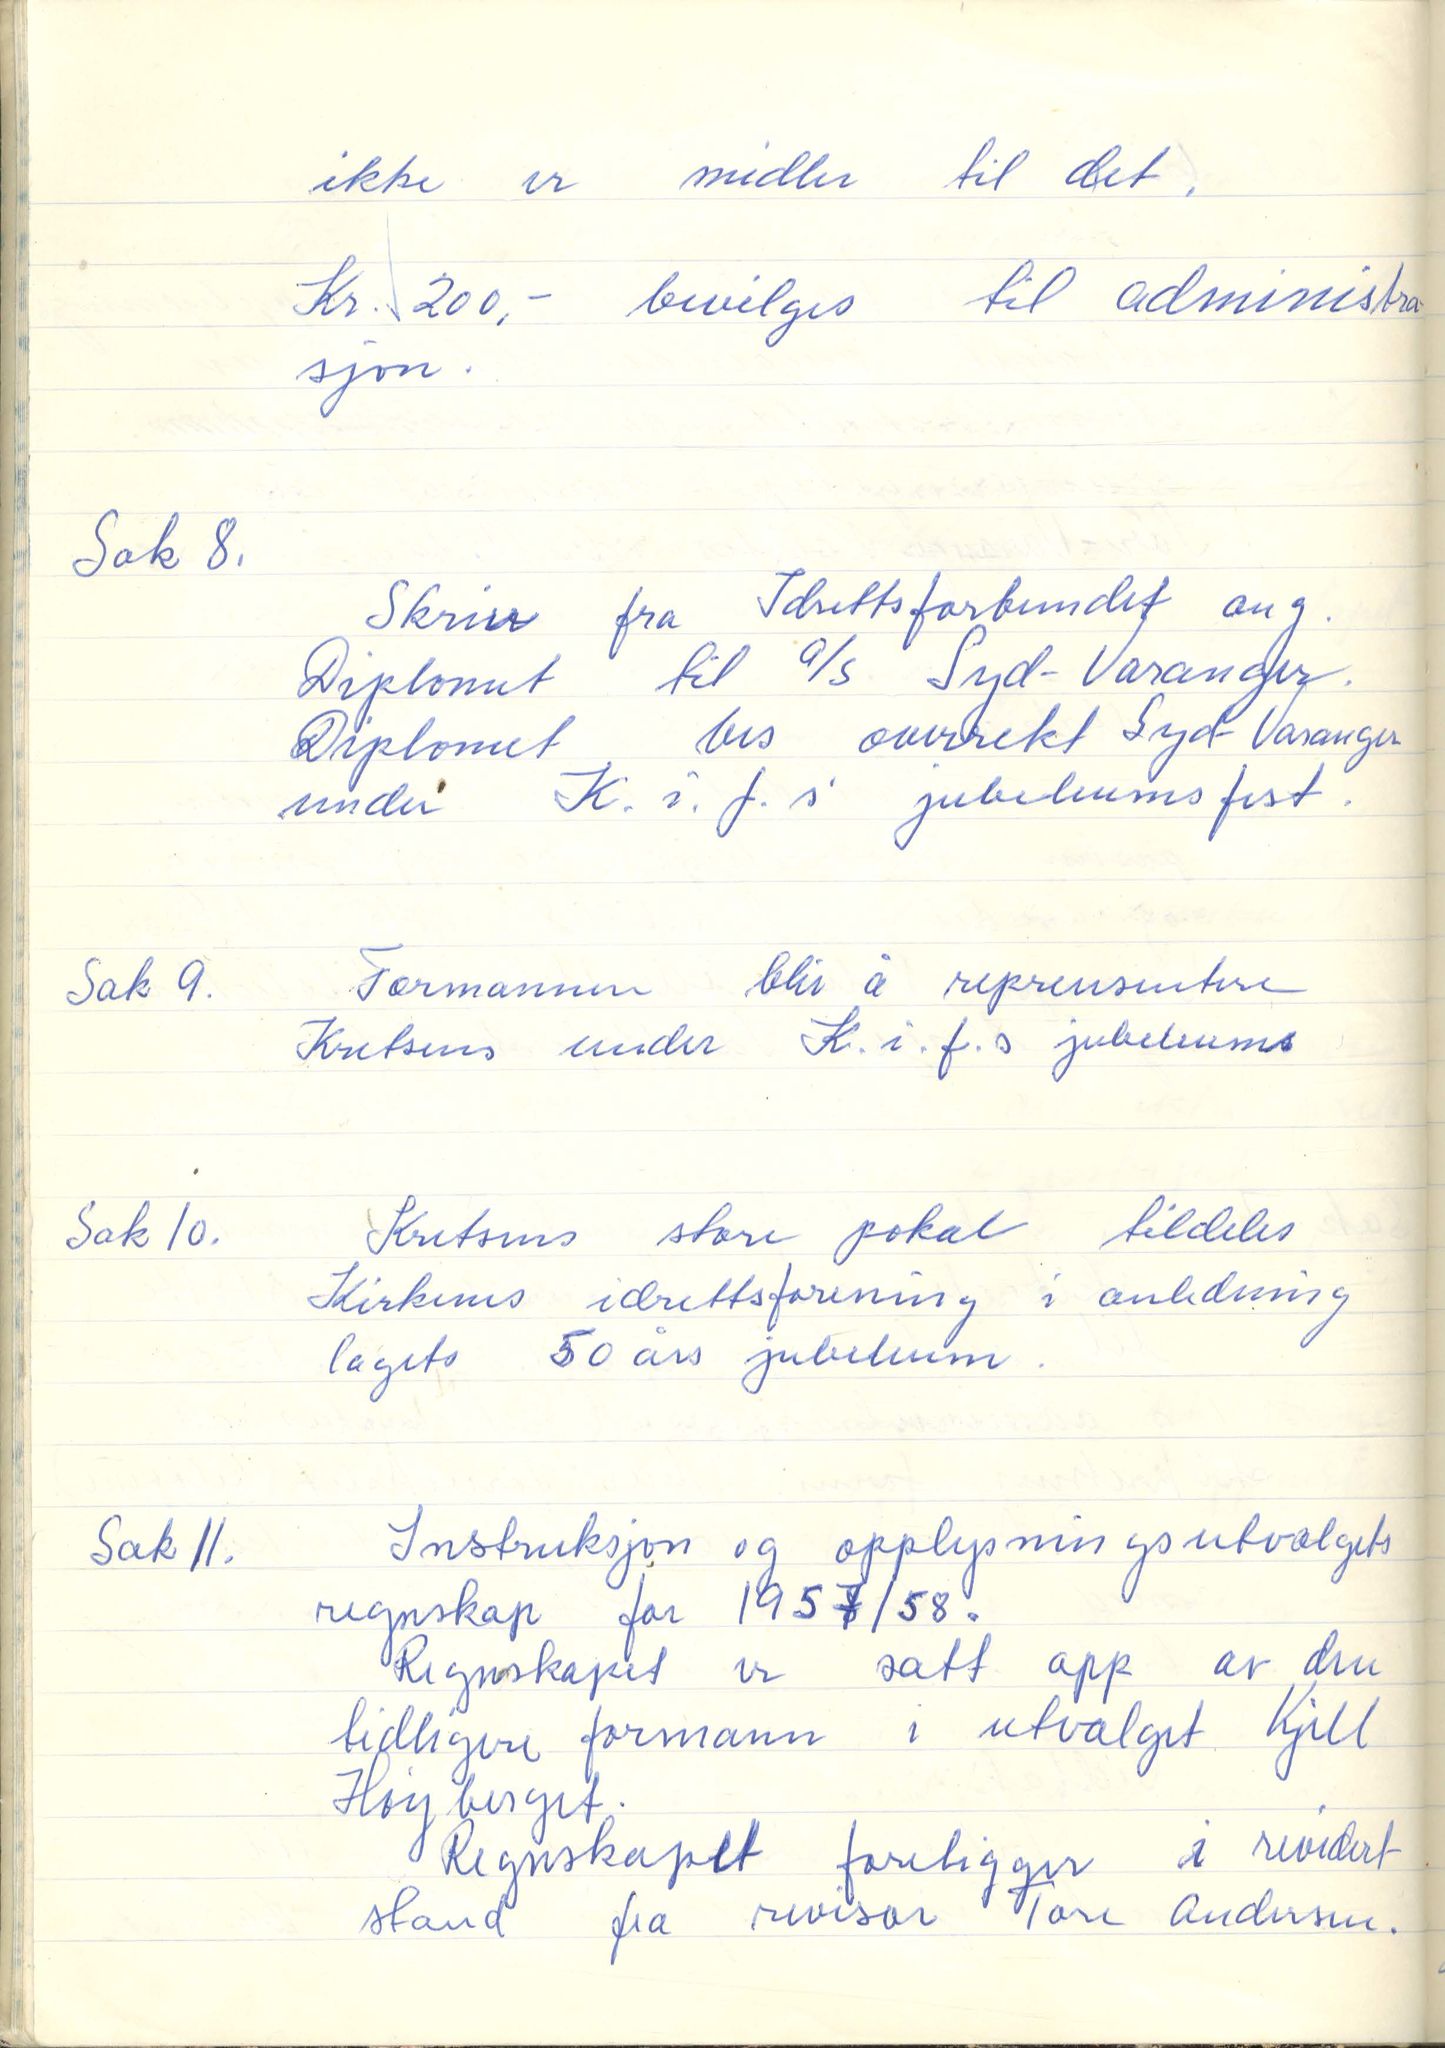 ikke er midler til det.
Kr. 200,- bevilges til administra-
sjon.
Sak 8.
Skriv fra Idrettsforbundet ang.
Diplomet til A/S Syd-Varanger.
Diplomet bes overrekt Syd-Varanger
under K.i.f.s jubeleumsfest.
Sak 9. Formannen blir å reprensentere
Kretsens under K.i.f.s jubeleums
Sak 10. Kretsens store pokal tildeles
Kirkenes idrettsforening i anledning
lagets 50 års jubeleum.
Sak 11. Instruksjon og opplysningsutvalgets
regnskap for 1957/58.
Regnskapet er satt opp av den
tidligere formann i utvalget Kjell
Høyberget.
Regnskapet foreligger i revidert
stand fra revisor Tore Andersen.